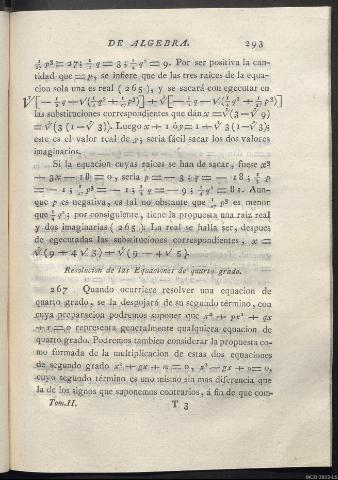 DE ALGEBRA. 293
1/27 p³ = 27; 1/2 q = 3; 1/4 q² = 9. Por ser positiva la can-
tidad que = p, se infiere que de las tres raices de la equa-
cion sola una es real (265), y se sacará con egecutar en
∛[-1/2 q + √(1/4 q² + 1/27 p³)] + ∛[-1/2 q - √(1/4 q² + 1/27 p³)]
las substituciones correspondientes que dan x = ∛(3 - √9)
= ∛3 (1 - √3). Luego x + 1 ó p = 1 + ∛3 (1 - √3);
este es el valor real de p; seria fácil sacar los dos valores
imaginarios.
Si la equacion cuyas raices se han de sacar, fuese x³
- 3x - 18 = 0, seria p = - 3; q = - 18; 1/3 p
= - 1; 1/27 p³ = - 1; 1/2 q = - 9; 1/4 q² = 81. Aun-
que p es negativa, es tal no obstante que 1/27 p³ es menor
que 1/4 q²; por consiguiente, tiene la propuesta una raiz real
y dos imaginarias (265). La real se halla ser, despues
de egecutadas las substituciones correspondientes, x =
∛(9 + 4√5) + ∛(9 - 4√5).
Resolucion de las Equaciones de quarto grado.
267 Quando ocurriere resolver una equacion de
quarto grado, se la despojará de su segundo término, con
cuya preparacion podremos suponer que x⁴ + px² + qx
+ r = 0 representa generalmente qualquiera equacion de
quarto grado. Podremos tambien considerar la propuesta co-
mo formada de la multiplicacion de estas dos equaciones
de segundo grado x² + gx + n = 0, x² - gx + o = 0,
cuyo segundo término es uno mismo sin mas diferencia que
la de los signos que suponemos contrarios, á fin de que com-
Tom.II. T 3
MCD 2022-L5